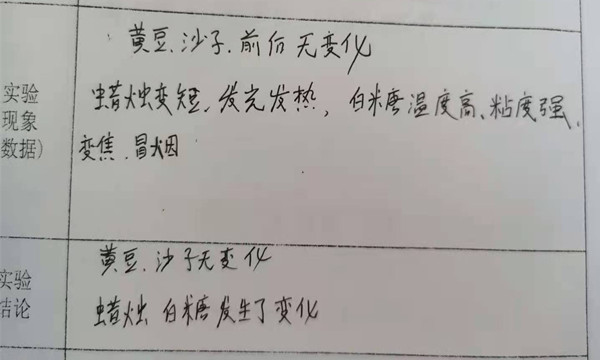 黄豆、沙子、前后无变化
实验
现象
数据)
蜡烛变短、发光发热，白米唐温度高、粘度强、
变焦、冒烟
黄豆、沙子无变化
实验
结论
蜡烛 白糖发生了变化